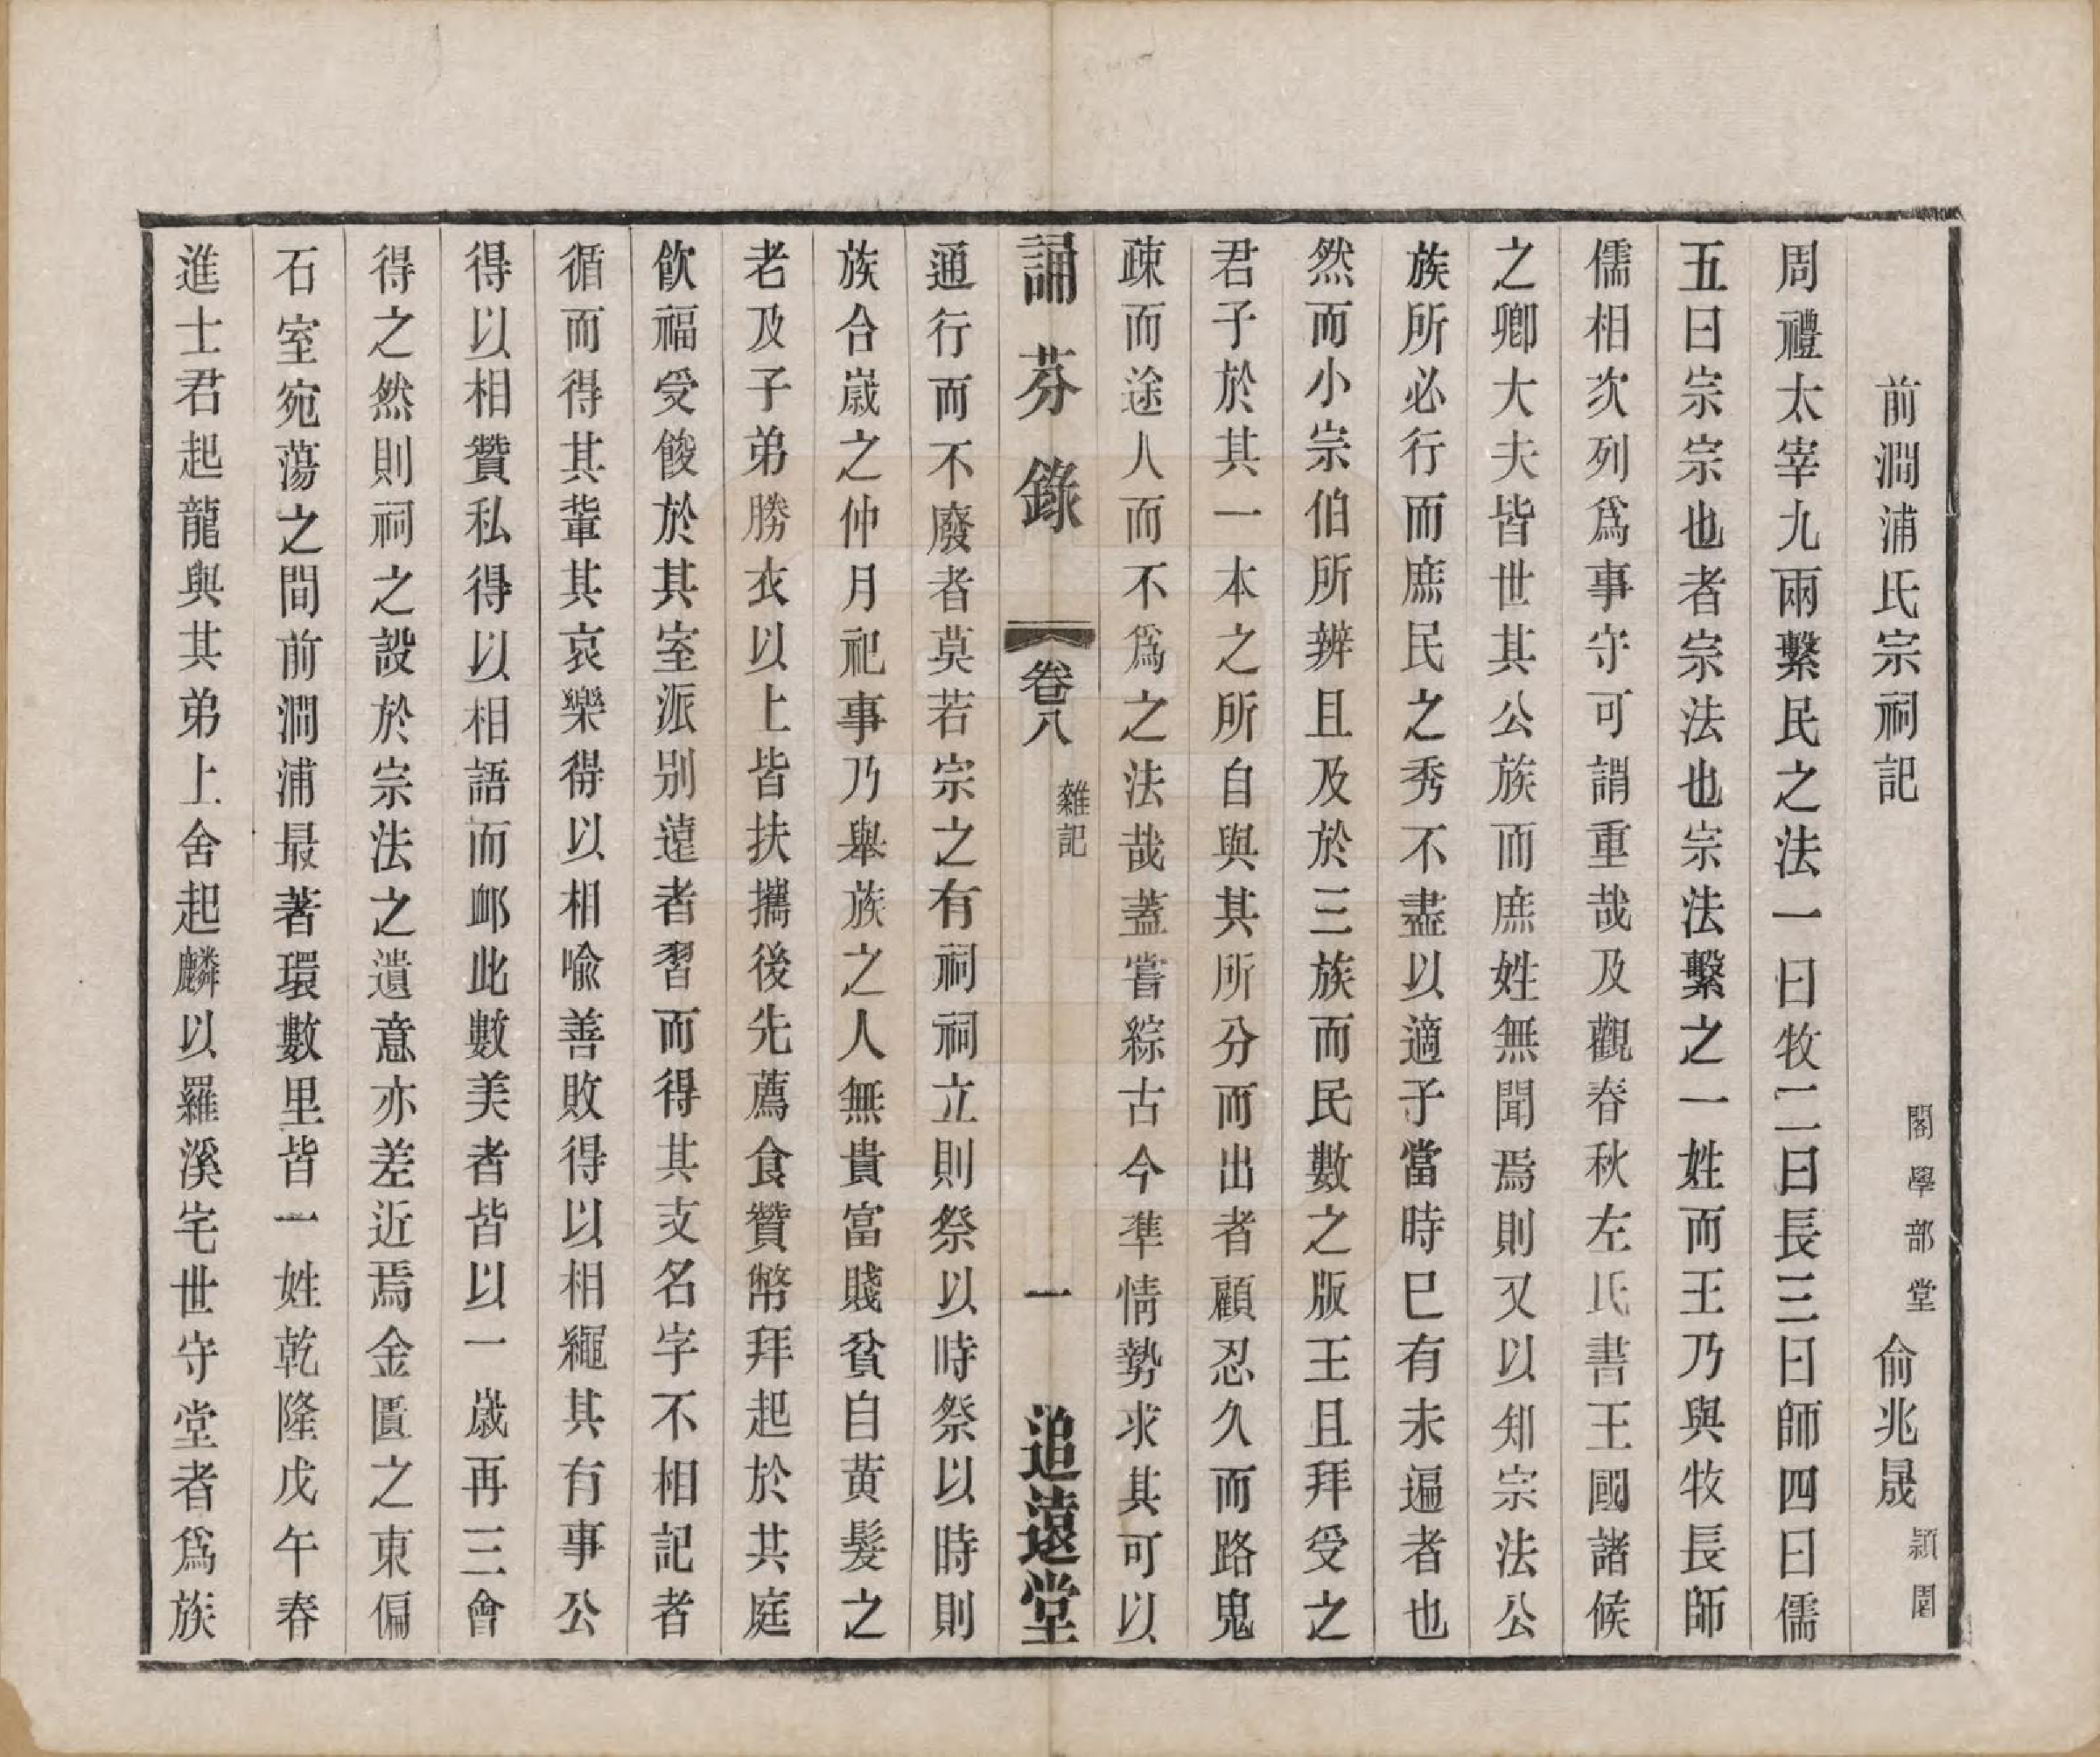 前澗浦氏宗祠記　閣學部堂俞兆晟潁園
周禮太宰九兩繫民之法一曰牧二曰長三曰師四曰儒
五曰宗宗也者宗法也宗法繫之一姓而王乃與牧長師
儒相次列爲事守可謂重哉及觀春秋左氏書王國諸候
之卿大夫皆世其公族而庶姓無聞焉則又以知宗法公
族所必行而庶民之秀不盡以適子當時巳有未遍者也
然而小宗伯所辨且及於三族而民數之版王且拜受之
君子於其一本之所自與其所分而出者顧忍久而路鬼
疎而途人而不爲之法哉蓋嘗綜古今準情勢求其可以
誦芬錄　卷八　雜記　一　追遠堂
通行而不廢者莫若宗之有祠祠立則祭以時祭以時則
族合歲之仲月祀事乃舉族之人無貴富賤貧自黃髮之
老及子弟勝衣以上皆扶攜後先薦食贊幣拜起於共庭
飲福受餕於其室派别遠者習而得其支名字不相記者
循而得其輩其哀樂得以相喩善敗得以相繩其有事公
得以相贊私得以相語而邮此數美者皆以一歲再三會
得之然則祠之設於宗法之遺意亦差近焉金匱之東偏
石室宛蕩之間前澗浦最著環數里皆一姓乾隆戊午春
進士君起龍與其弟上舍起麟以羅溪宅世守堂者爲族